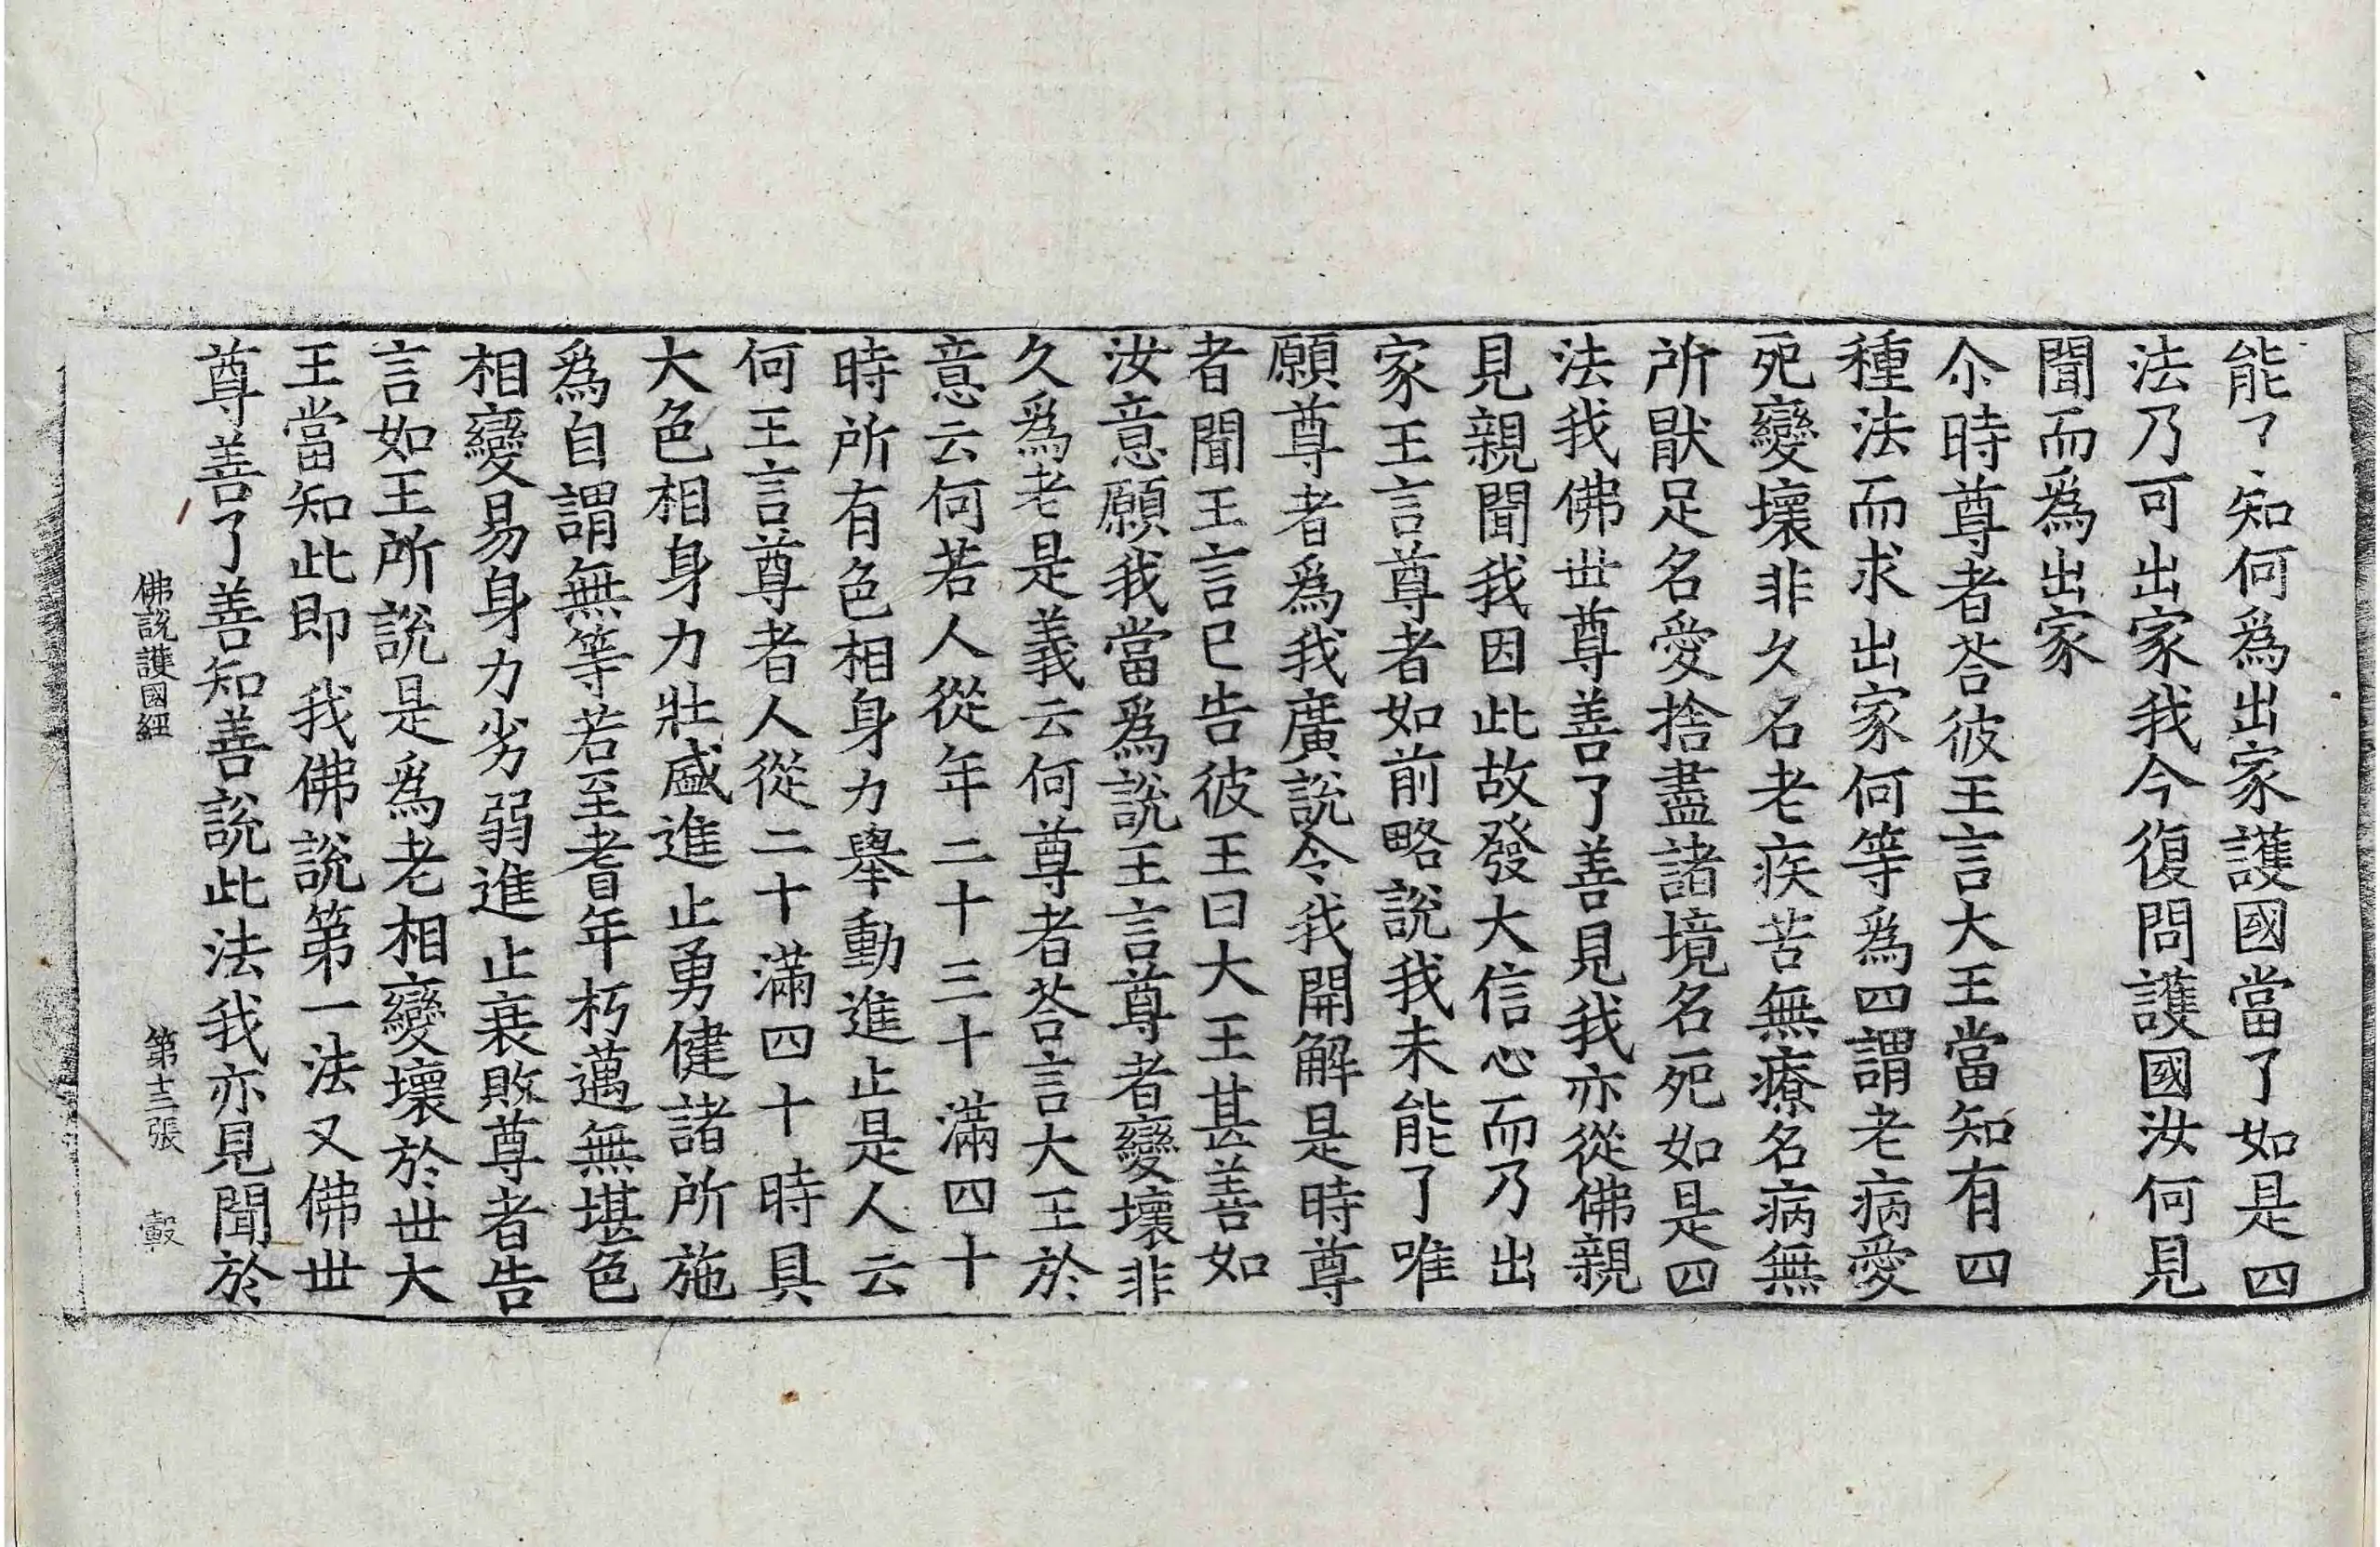 能了知何爲出家護國當了如是四
法乃可出家我今復問護國汝何見
聞而爲出家
尒時尊者荅彼王言大王當知有四
種法而求出家何等爲四謂老病愛
死變壞非久名老疾苦無療名病無
所猒足名愛捨盡諸境名死如是四
法我佛世尊善了善見我亦從佛親
見親聞我因此故發大信心而乃出
家王言尊者如前略說我未能了唯
願尊者爲我廣說令我開解是時尊
者聞王言已告彼王曰大王甚善如
汝意願我當爲說王言尊者變壞非
久爲老是義云何尊者荅言大王於
意云何若人從年二十三十滿四十
時所有色相身力舉動進止是人云
何王言尊者人從二十滿四十時具
大色相身力壯盛進止勇健諸所施
爲自謂無等若至耆年朽邁無堪色
相變易身力劣弱進止衰敗尊者告
言如王所說是爲老相變壞於世大
王當知此即我佛說第一法又佛世
尊善了善知善說此法我亦見聞於
佛說護國經 第十二張 轂